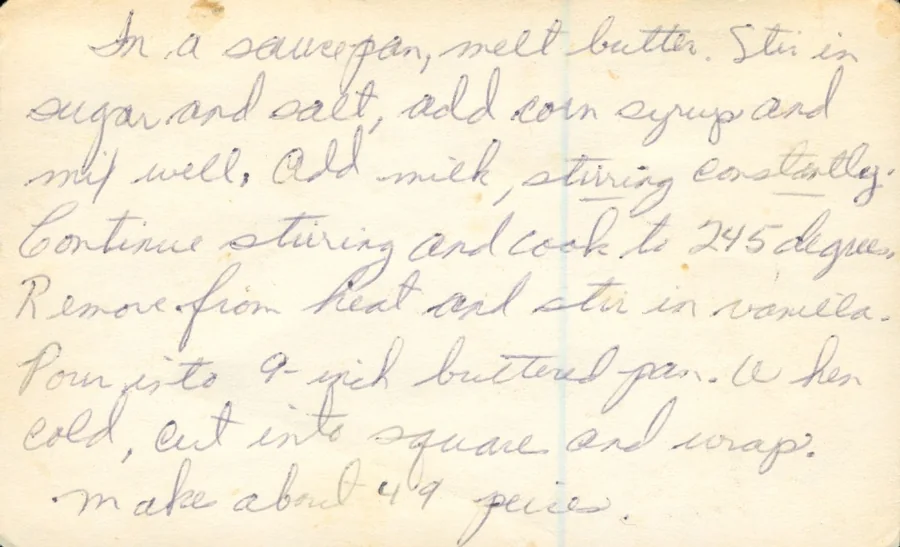 In a saucepan, melt butter. Stir in
sugar and salt, add corn syrup and
mix well. Add milk, stiring constantly.
Continue stiring and cook to 245 degrees.
Remove from heat and stir in vanilla.
Pour into 9-inch buttered pan. When
cold, cut into square and wrap.
Makes about 49 peices.